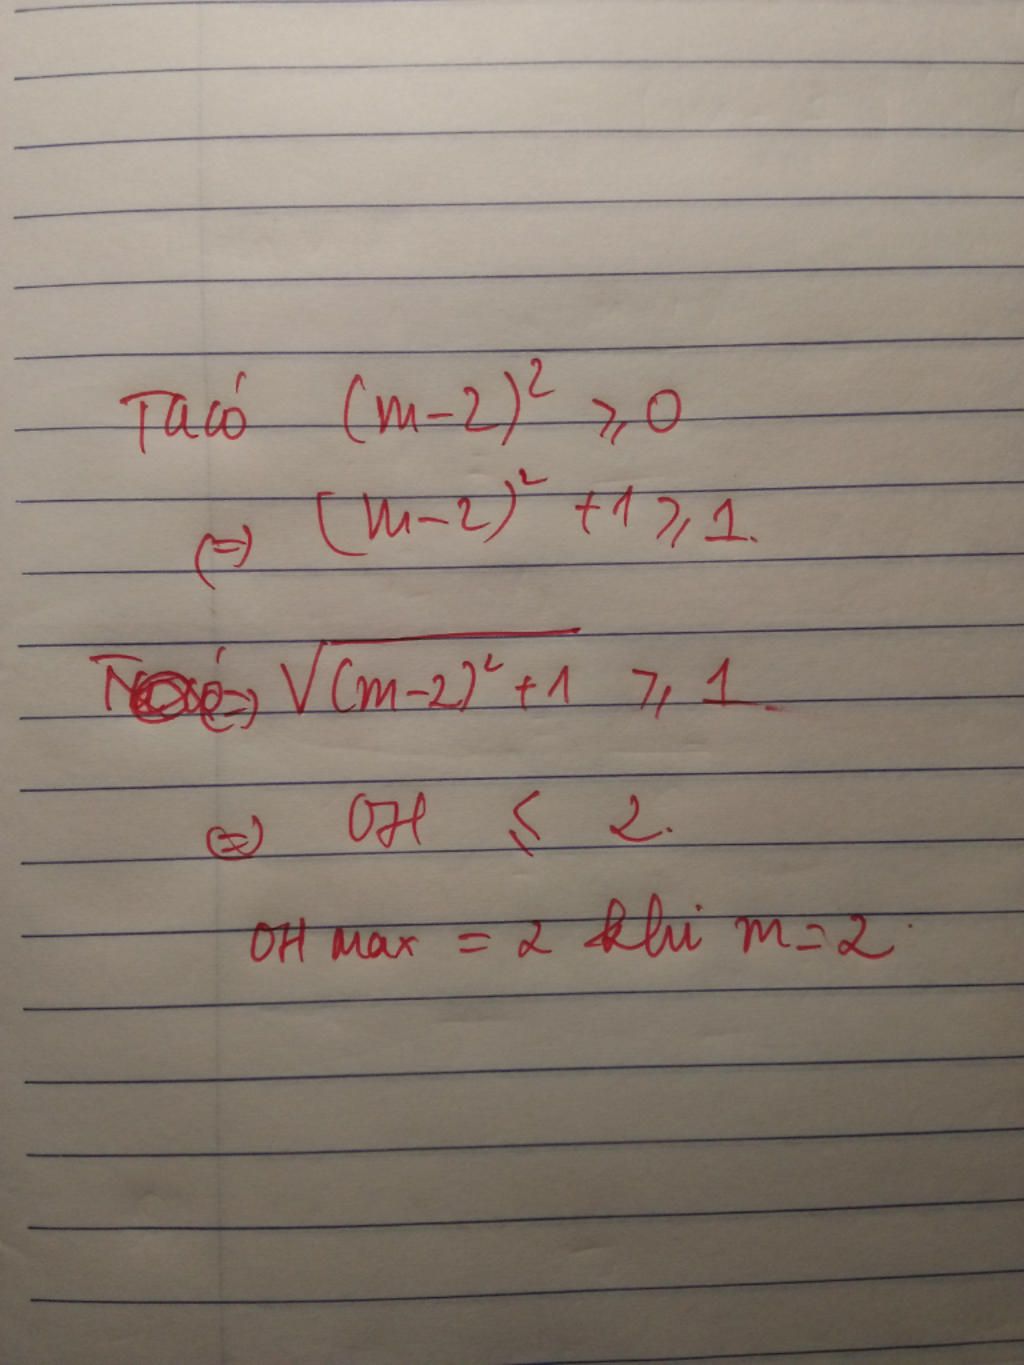 Ta có (m-2)² ⩾ 0
(=) (m-2)² + 1 ⩾ 1.
(=) √(m-2)² + 1 ⩾ 1
(=) OH ⩽ 2.
OH max = 2 khi m = 2.